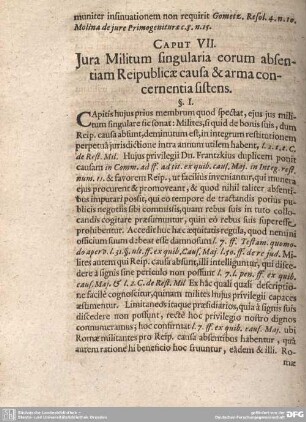 muniter insinuationem non requirit Gometz. Resol. 4. n. 10.
Molina de jure Primogenituræ c. 5. n. 15.
CAPUT VII.
Jura Militum singularia eorum absen-
tiam Reipublicæ causa & arma con-
cernentia sistens.
§. I.
CApitis hujus prius membrum quod spectat, ejus jus mili-
tum singulare sic sonat: Milites, si quid de bonis suis, dum
Reip. causa absunt, deminutum est, in integrum restitutionem
perpetuâ jurisdictione intra annum utilem habent, l. 1. & 2. C.
de Rest. Mil. Hujus privilegii Dn. Frantzkius duplicem ponit
causam in Comm. ad ff. ad tit. ex quib. cauf. Maj. in integ. rest.
num. 11. & favorem Reip., ut facilius inveniantur, qui munera
ejus procurent & promoveant, & quod nihil taliter absenti-
bus impurari possit, qui eo tempore de tractandis potius pu-
blicis negotiis sibi commissis, quam rebus suis in tuto collo-
candis cogitare præsumuntur, quin eo rebus suis superesse
prohibentur. Accedit huc hæc æquitatis regula, quod nemini
officium suum debeat esse damnosum l. 7. ff. Testam. quemo-
do aper. l. 31. §. ult. ff. ex quib. Caus. Maj. l. 50. ff. de re jud. Mi-
lites autem qui Reip. causa absunt, illi intelliguntur, qui disce-
dere à signis sine periculo non possunt l. 7. l. pen. ff. ex quib.
cauf. Maj. & l. 1. C. de Rest. Mil. Ex hâc quali quali descriptio-
ne facilè cognoscitur, quinam milites hujus privilegii capaces
æstumentur. Limitaneos itaque præsidiarios, quia à signis suis
discedere non possunt, rectè hoc privilegio nostro dignos
connumeramus; hoc confirmat l. 7. ff. ex quib. cauf. Maj. ubi
Romæ militantes pro Reip. causa absentibus habentur, quâ
autem ratione hi beneficio hoc fruuntur, eâdem & illi. Ro-
mæ